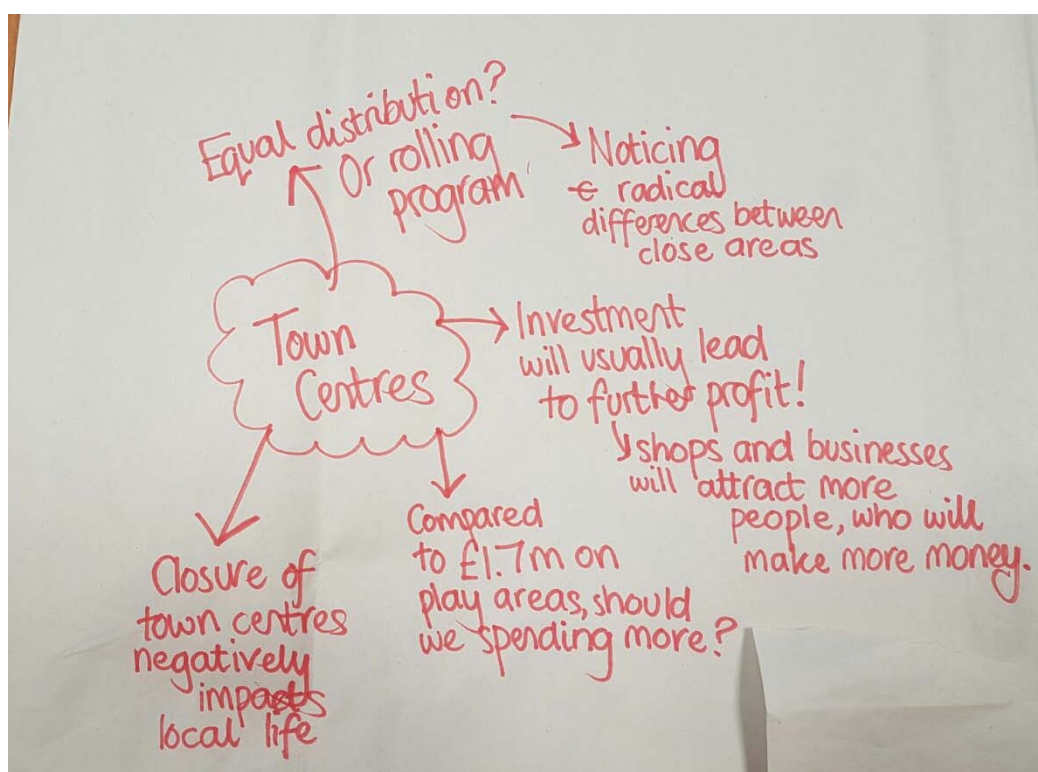 Equal distribution?
Or rolling
program
Noticing
radical
differences between
close areas
Town
Centres
Investment
will usually lead
to further profit!
shops and businesses
will attract more
people, who will
make more money.
Compared
to £1.7m on
play areas, should
we spending more?
Closure of
town centres
negatively
impacts
local life